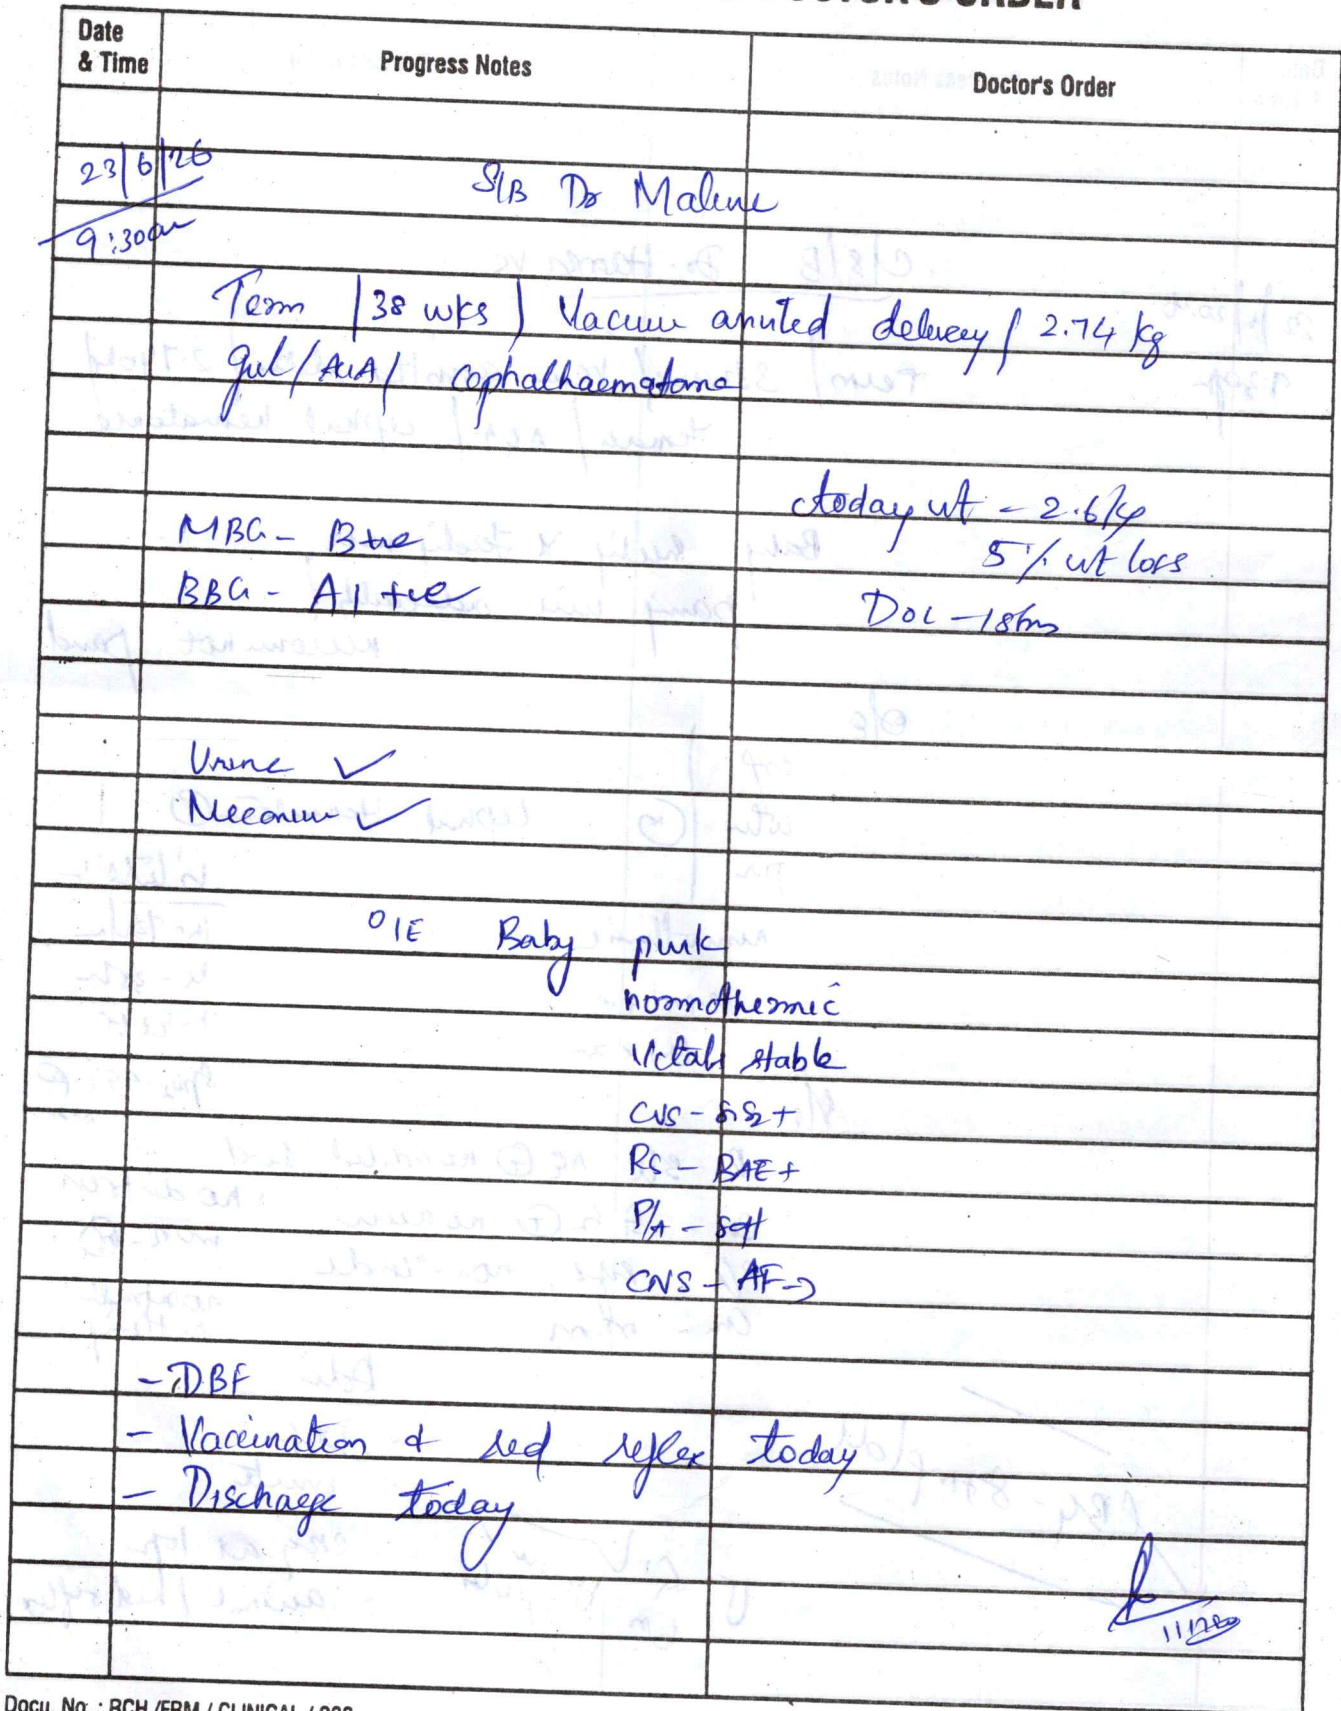 DOCTOR'S ORDER
Date & Time
Progress Notes
Doctor's Order
23/6/26
S/B Dr Maline
9:30am
Term / 38 wks / Vacuum assisted delivery / 2.74 kg
girl / AGA / cephalhaematoma
today wt - 2.61kg
MBG - B+ve
5% wt loss
BBG - A1 +ve
DOL - 18hrs
Urine ✓
Meconium ✓
O/E Baby pink
normothermic
Vitals stable
CVS - S1S2+
RS - BAE+
P/A - soft
CNS - AF →
- DBF
- Vaccination & red reflex today
- Discharge today
Docu. No. : RCH /FRM / CLINICAL /